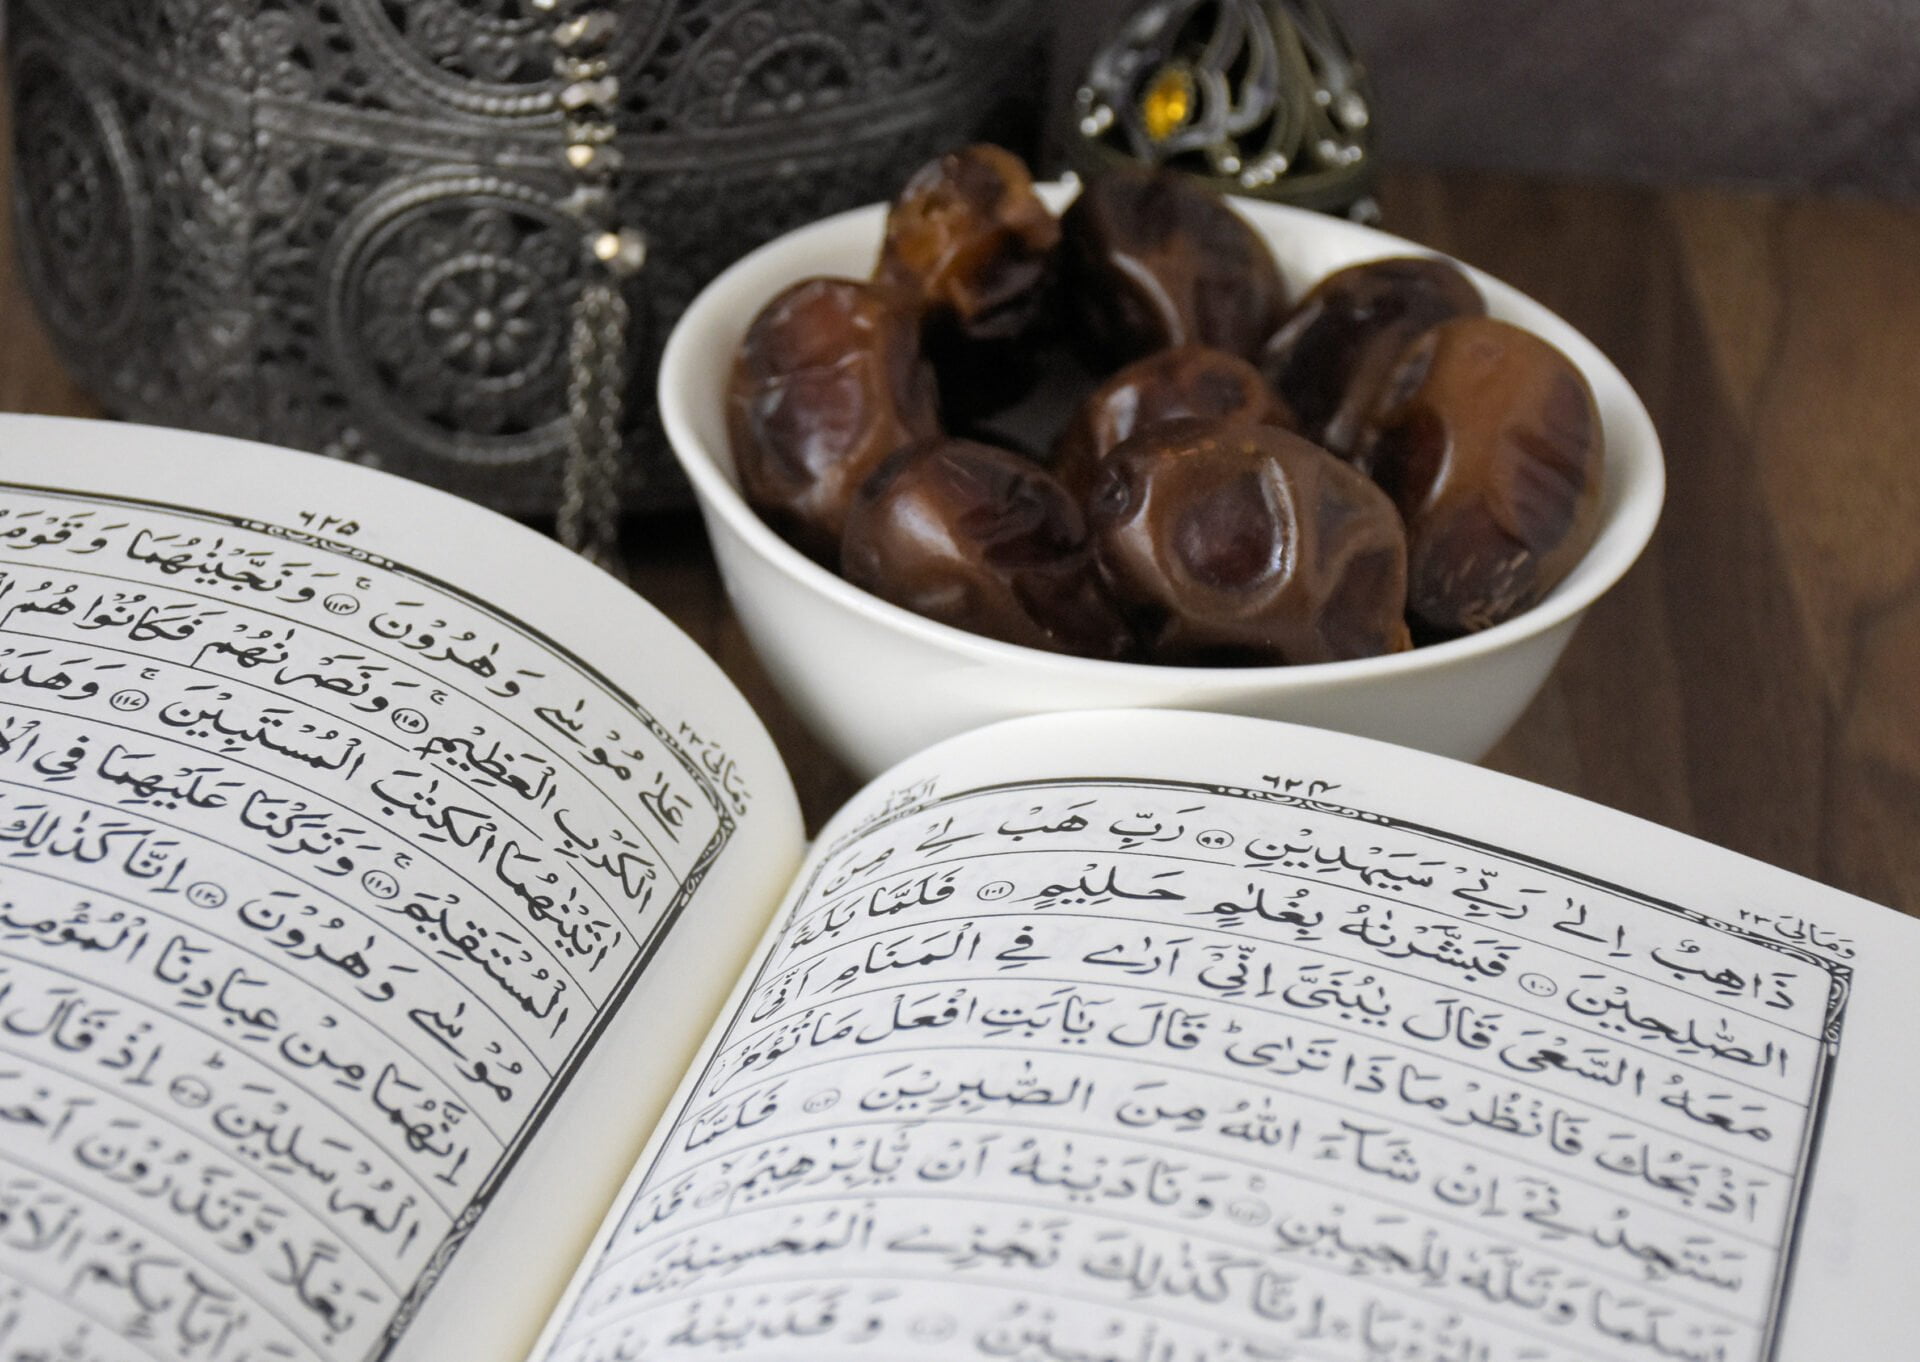 ٦٢٤
وَمَالِيَ ٢٣
ذَاهِبٌ اِلٰى رَبِّىْ سَيَهْدِيْنِ ﴿٩٩﴾ رَبِّ هَبْ لِىْ مِنَ
الصّٰلِحِيْنَ ﴿١٠٠﴾ فَبَشَّرْنٰهُ بِغُلٰمٍ حَلِيْمٍ ﴿١٠١﴾ فَلَمَّا بَلَغَ
مَعَهُ السَّعْىَ قَالَ يٰبُنَىَّ اِنِّىْۤ اَرٰى فِى الْمَنَامِ اَنِّىْۤ
اَذْبَحُكَ فَانْظُرْ مَاذَا تَرٰىؕ قَالَ يٰۤاَبَتِ افْعَلْ مَا تُؤْمَرُ
سَتَجِدُنِىْۤ اِنْ شَآءَ اللّٰهُ مِنَ الصّٰبِرِيْنَ ﴿١٠٢﴾ فَلَمَّاۤ
اَسْلَمَا وَتَلَّهٗ لِلْجَبِيْنِ ﴿١٠٣﴾ وَنَادَيْنٰهُ اَنْ يّٰۤاِبْرٰهِيْمُ ﴿١٠٤﴾ قَدْ
الرُّءْيَا اِنَّا كَذٰلِكَ نَجْزِى الْمُحْسِنِيْنَ
وَفَدَيْنٰهُ
٦٢٥
وَمَالِيَ ٢٣
عَلٰى مُوْسٰى وَهٰرُوْنَ ﴿١١٤﴾ وَنَجَّيْنٰهُمَا
الْكَرْبِ الْعَظِيْمِ ﴿١١٥﴾ وَنَصَرْنٰهُمْ فَكَانُوْا هُمُ
اٰتَيْنٰهُمَا الْكِتٰبَ الْمُسْتَبِيْنَ ﴿١١٧﴾
الْمُسْتَقِيْمَ ﴿١١٨﴾ وَتَرَكْنَا عَلَيْهِمَا فِى
مُوْسٰى وَهٰرُوْنَ ﴿١٢٠﴾ اِنَّا كَذٰلِكَ
اِنَّهُمَا مِنْ عِبَادِنَا
الْمُرْسَلِيْنَؕ اِذْ قَالَ
بَعْلًا وَّتَذَرُوْنَ
اٰبَآئِكُمُ